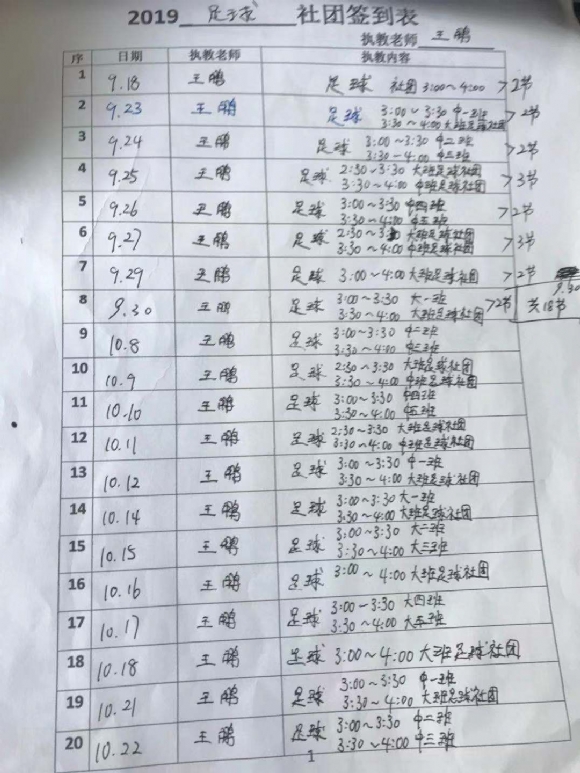 2019 足球 社团签到表
执教老师 王鹏
序 日期 执教老师 执教内容
1 9.18 王鹏 足球 社团 3:00~4:00 >2节
2 9.23 王鹏 足球 3:00~3:30 中一班 >2节
3:30~4:00 大班足球社团
3 9.24 王鹏 足球 3:00~3:30 中二班 >2节
3:30-4:00 中三班
4 9.25 王鹏 足球 2:30~3:30 大班足球社团 >3节
3:30~4:00 中班足球社团
5 9.26 王鹏 足球 3:00~3:30 中四班 >2节
3:30~4:00 中五班
6 9.27 王鹏 足球 2:30~3:30 大班足球社团 >3节
3:30~4:00 中班足球社团
7 9.29 王鹏 足球 3:00~4:00 大班足球社团 >2节
9.30
8 9.30 王鹏 足球 3:00~3:30 大一班 >2节 共18节
3:30~4:00 大班足球社团
9 10.8 王鹏 足球 3:00~3:30 中二班
3:30~4:00 中三班
10 10.9 王鹏 足球 2:30~3:30 大班足球社团
3:30~4:00 中班足球社团
11 10.10 王鹏 足球 3:00~3:30 中四班
3:30~4:00 中五班
12 10.11 王鹏 足球 2:30~3:30 大班足球社团
3:30~4:00 中班足球社团
13 10.12 王鹏 足球 3:00~3:30 中一班
3:30~4:00 大班足球社团
14 10.14 王鹏 足球 3:00~3:30 大一班
3:30~4:00 大班足球社团
15 10.15 王鹏 足球 3:00~3:30 大二班
3:30~4:00 大三班
16 10.16 王鹏 足球 3:00~4:00 大班足球社团
17 10.17 王鹏 足球 3:00-3:30 大四班
3:30~4:00 大五班
18 10.18 王鹏 足球 3:00~4:00 大班足球社团
19 10.21 王鹏 足球 3:00~3:30 中一班
3:30~4:00 大班足球社团
20 10.22 王鹏 足球 3:00~3:30 中二班
3:30~4:00 中三班
1